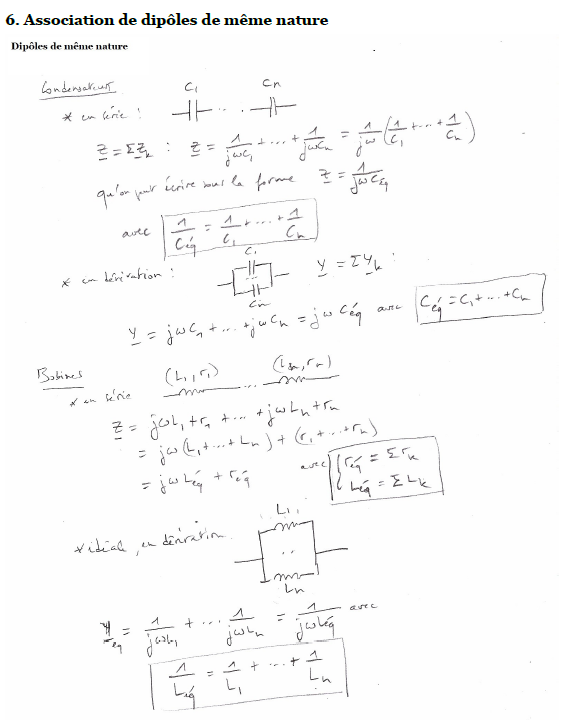 6. Association de dipôles de même nature
Dipôles de même nature
Condensateurs
* en série : C₁ Cn
Z = ΣZk : Z = 1/jωC₁ + ... + 1/jωCn = 1/jω (1/C₁ + ... + 1/Cn)
qu'on peut écrire sous la forme Z = 1/jωCéq
avec 1/Céq = 1/C₁ + ... + 1/Cn
* en dérivation : C₁ Cn Y = ΣYk :
Y = jωC₁ + ... + jωCn = jωCéq avec Céq = C₁ + ... + Cn
Bobines
* en série (L₁, r₁) ... (Ln, rn)
Z = jωL₁ + r₁ + ... + jωLn + rn
= jω(L₁ + ... + Ln) + (r₁ + ... + rn)
= jωLéq + réq avec { réq = Σrk
Léq = ΣLk
* idéale, en dérivation. L₁ .. Ln
Yeq = 1/jωL₁ + ... 1/jωLn = 1/jωLéq avec
1/Léq = 1/L₁ + ... + 1/Ln